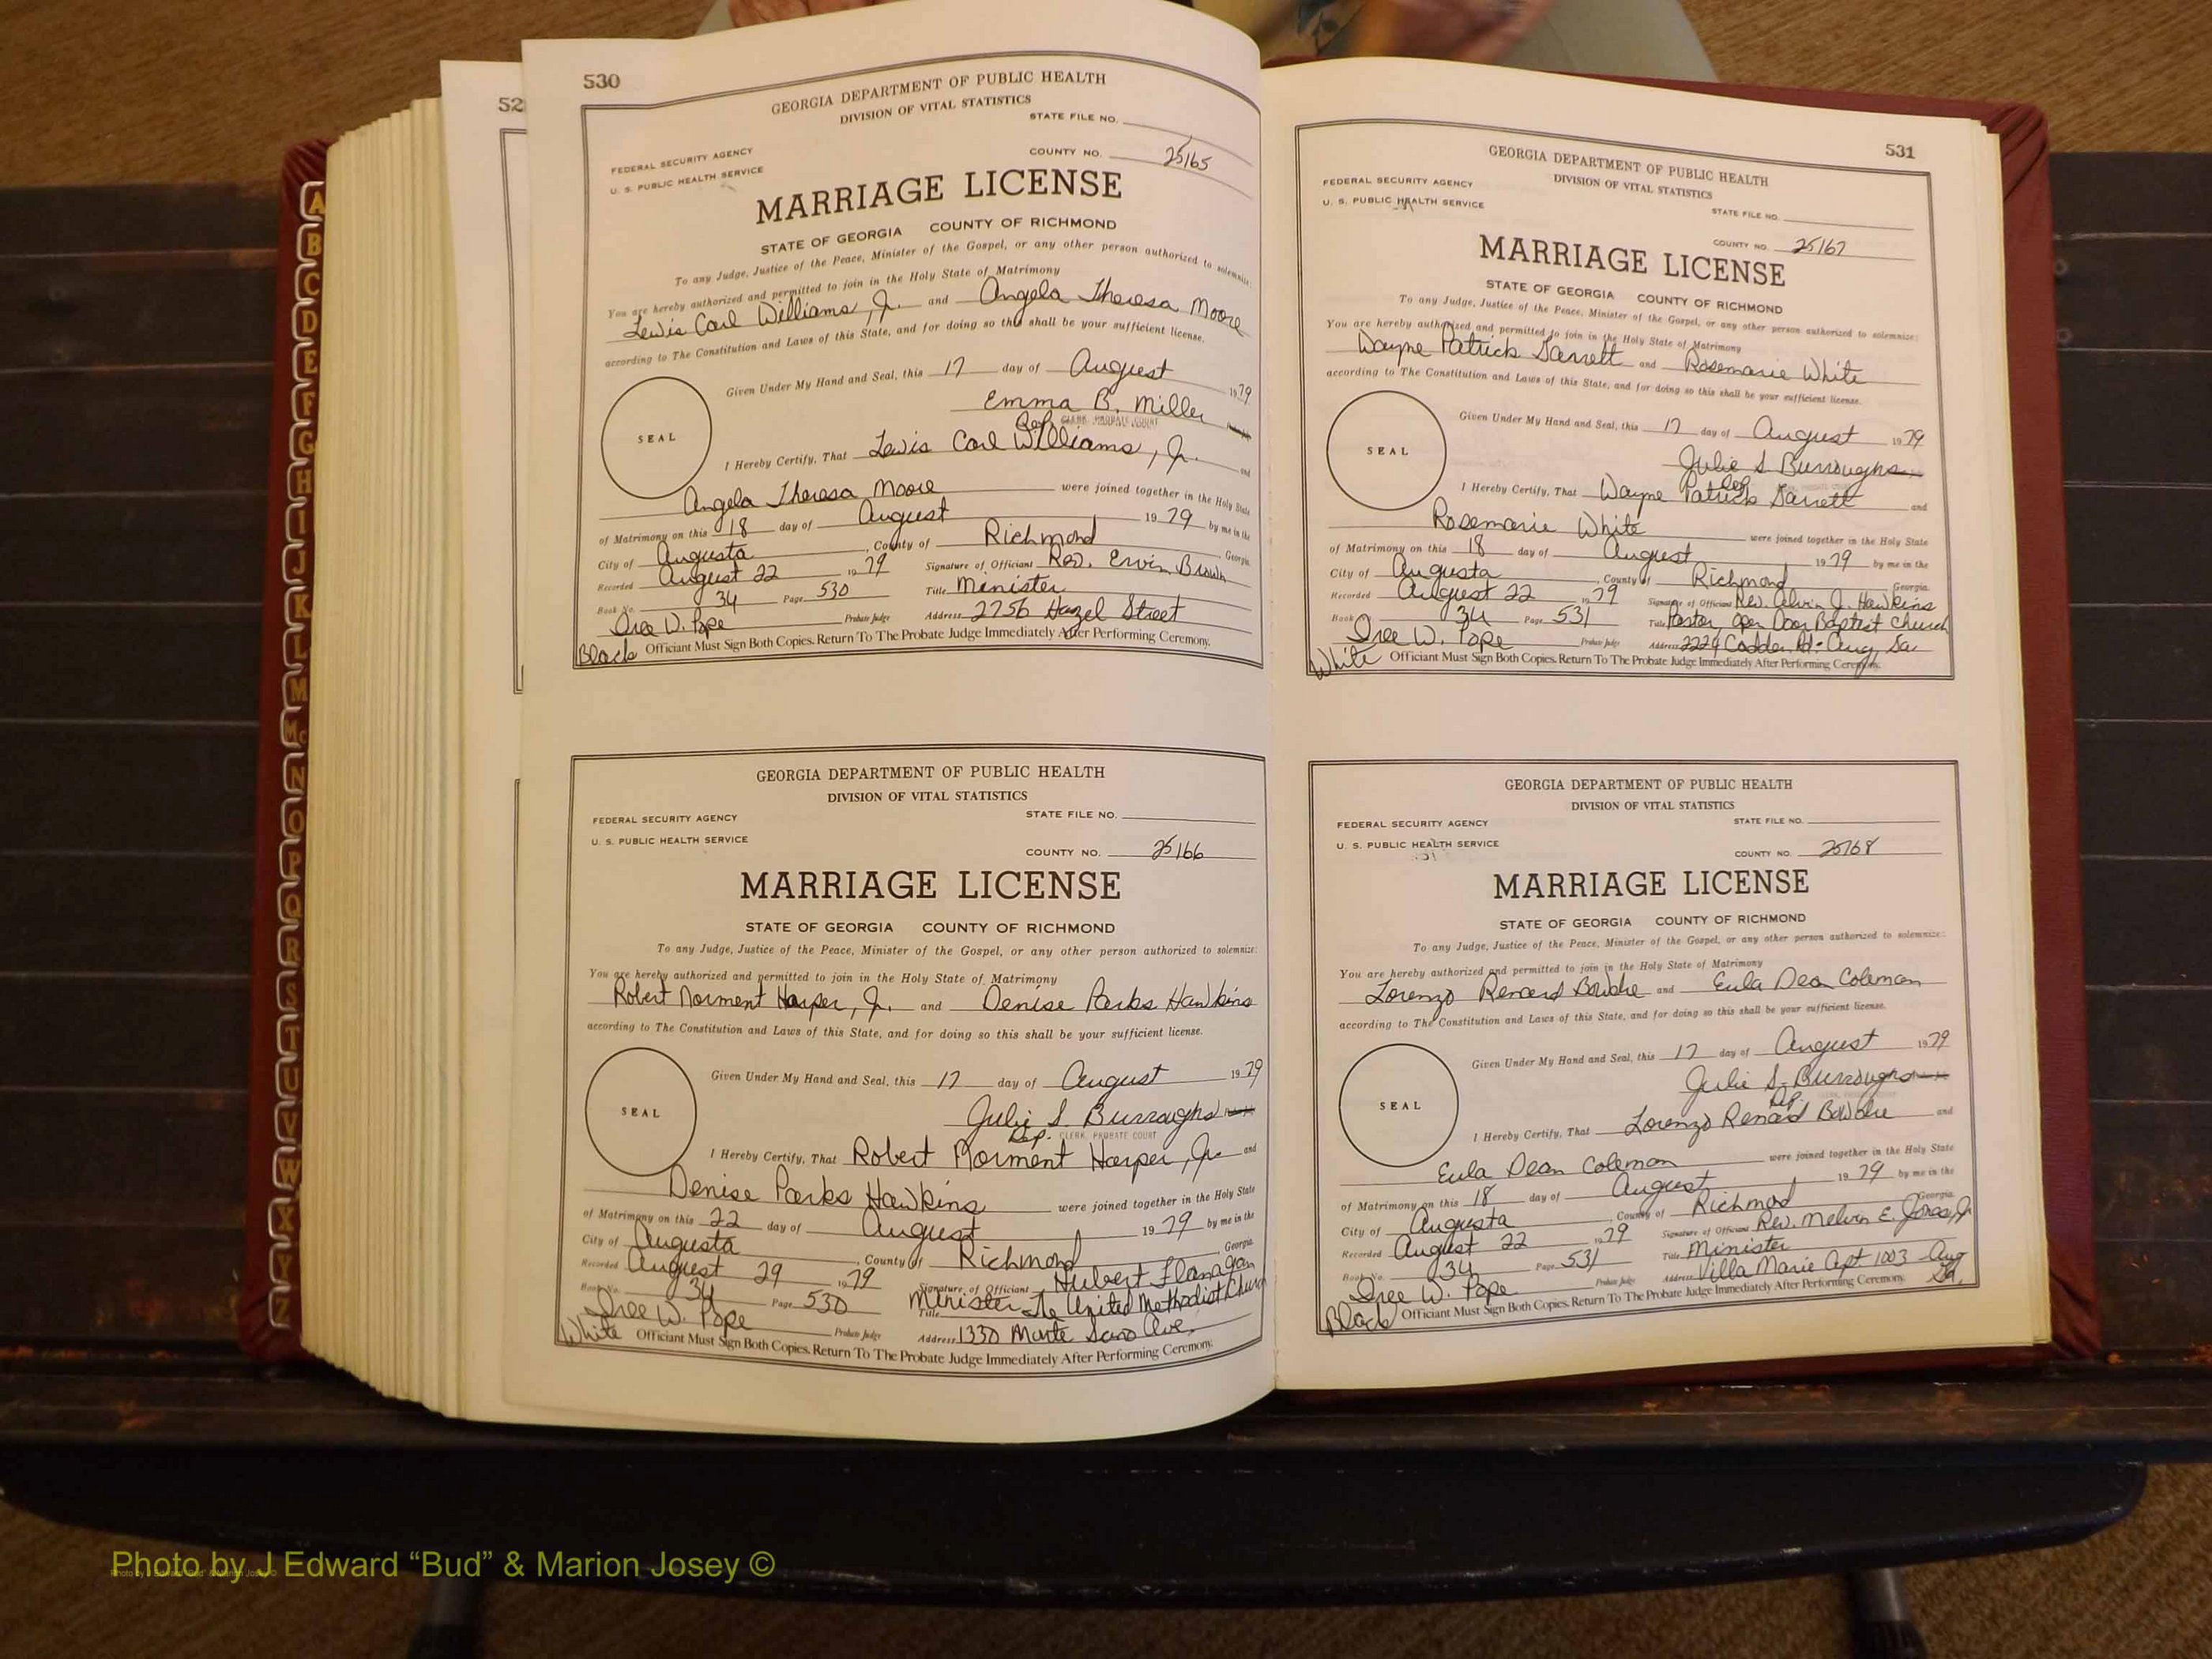 A
B
C
D
E
F
G
H
I
J
K
L
M
Mc
N
O
P
Q
R
S
T
U
V
W
X
Y
Z
52
530
GEORGIA DEPARTMENT OF PUBLIC HEALTH
DIVISION OF VITAL STATISTICS
STATE FILE NO.
FEDERAL SECURITY AGENCY
U. S. PUBLIC HEALTH SERVICE
COUNTY NO. 25165
MARRIAGE LICENSE
STATE OF GEORGIA COUNTY OF RICHMOND
To any Judge, Justice of the Peace, Minister of the Gospel, or any other person authorized to solemnize:
You are hereby authorized and permitted to join in the Holy State of Matrimony
Lewis Carl Williams, Jr. and Angela Theresa Moore
according to The Constitution and Laws of this State, and for doing so this shall be your sufficient license.
Given Under My Hand and Seal, this 17 day of August 1979
Emma B. Miller
SEAL
Dep. CLERK, PROBATE COURT
I Hereby Certify, That Lewis Carl Williams, Jr. and
Angela Theresa Moore were joined together in the Holy State
of Matrimony on this 18 day of August 1979 by me in the
City of Augusta, County of Richmond, Georgia.
Recorded August 22 1979 Signature of Officiant Rev. Ervin Brown
Book No. 34 Page 530 Title Minister
Dree W. Pope Probate Judge Address 2756 Hazel Street
Black Officiant Must Sign Both Copies. Return To The Probate Judge Immediately After Performing Ceremony.
GEORGIA DEPARTMENT OF PUBLIC HEALTH
DIVISION OF VITAL STATISTICS
FEDERAL SECURITY AGENCY STATE FILE NO.
U. S. PUBLIC HEALTH SERVICE
COUNTY NO. 25166
MARRIAGE LICENSE
STATE OF GEORGIA COUNTY OF RICHMOND
To any Judge, Justice of the Peace, Minister of the Gospel, or any other person authorized to solemnize:
You are hereby authorized and permitted to join in the Holy State of Matrimony
Robert Norment Harper, Jr. and Denise Parks Hawkins
according to The Constitution and Laws of this State, and for doing so this shall be your sufficient license.
Given Under My Hand and Seal, this 17 day of August 1979
SEAL
Julie S. Burroughs
Dep. CLERK, PROBATE COURT
I Hereby Certify, That Robert Norment Harper, Jr. and
Denise Parks Hawkins were joined together in the Holy State
of Matrimony on this 22 day of August 1979 by me in the
City of Augusta, County of Richmond, Georgia.
Recorded August 29 1979 Signature of Officiant Hubert Flanagan
Book No. 34 Page 530 Title Minister The United Methodist Church
Dree W. Pope Probate Judge Address 1330 Monte Sano Ave.
White Officiant Must Sign Both Copies. Return To The Probate Judge Immediately After Performing Ceremony.
531
GEORGIA DEPARTMENT OF PUBLIC HEALTH
DIVISION OF VITAL STATISTICS
FEDERAL SECURITY AGENCY
U. S. PUBLIC HEALTH SERVICE
STATE FILE NO.
COUNTY NO. 25167
MARRIAGE LICENSE
STATE OF GEORGIA COUNTY OF RICHMOND
To any Judge, Justice of the Peace, Minister of the Gospel, or any other person authorized to solemnize:
You are hereby authorized and permitted to join in the Holy State of Matrimony
Wayne Patrick Garrett and Rosemarie White
according to The Constitution and Laws of this State, and for doing so this shall be your sufficient license.
Given Under My Hand and Seal, this 17 day of August 1979
SEAL
Julie S Burroughs
Dep
I Hereby Certify, That Wayne Patrick Garrett and
Rosemarie White were joined together in the Holy State
of Matrimony on this 18 day of August 1979 by me in the
City of Augusta, County of Richmond, Georgia.
Recorded August 22 1979 Signature of Officiant Rev. Alvin J. Hawkins
Book 34 Page 531 Title Pastor Open Door Baptist Church
Dree W. Pope Probate Judge Address 2229 Rd. Aug, Ga.
White Officiant Must Sign Both Copies. Return To The Probate Judge Immediately After Performing Ceremony.
GEORGIA DEPARTMENT OF PUBLIC HEALTH
DIVISION OF VITAL STATISTICS
FEDERAL SECURITY AGENCY STATE FILE NO.
U. S. PUBLIC HEALTH SERVICE
COUNTY NO. 25168
MARRIAGE LICENSE
STATE OF GEORGIA COUNTY OF RICHMOND
To any Judge, Justice of the Peace, Minister of the Gospel, or any other person authorized to solemnize:
You are hereby authorized and permitted to join in the Holy State of Matrimony
Lorenzo Renard Bowdre and Eula Dean Coleman
according to The Constitution and Laws of this State, and for doing so this shall be your sufficient license.
Given Under My Hand and Seal, this 17 day of August 1979
SEAL
Julie S. Burroughs
Dep.
I Hereby Certify, That Lorenzo Renard Bowdre and
Eula Dean Coleman were joined together in the Holy State
of Matrimony on this 18 day of August 1979 by me in the
City of Augusta County of Richmod Georgia.
Recorded August 22 1979 Signature of Officiant Rev. Melvin E. Jones, Jr
Book No. 34 Page 531 Title Minister
Dree W. Pope Probate Judge Address Villa Marie Apt 1003 Aug
Ga.
Black Officiant Must Sign Both Copies. Return To The Probate Judge Immediately After Performing Ceremony.
Photo by J Edward “Bud” & Marion Josey ©
Photo by J Edward “Bud” & Marion Josey ©